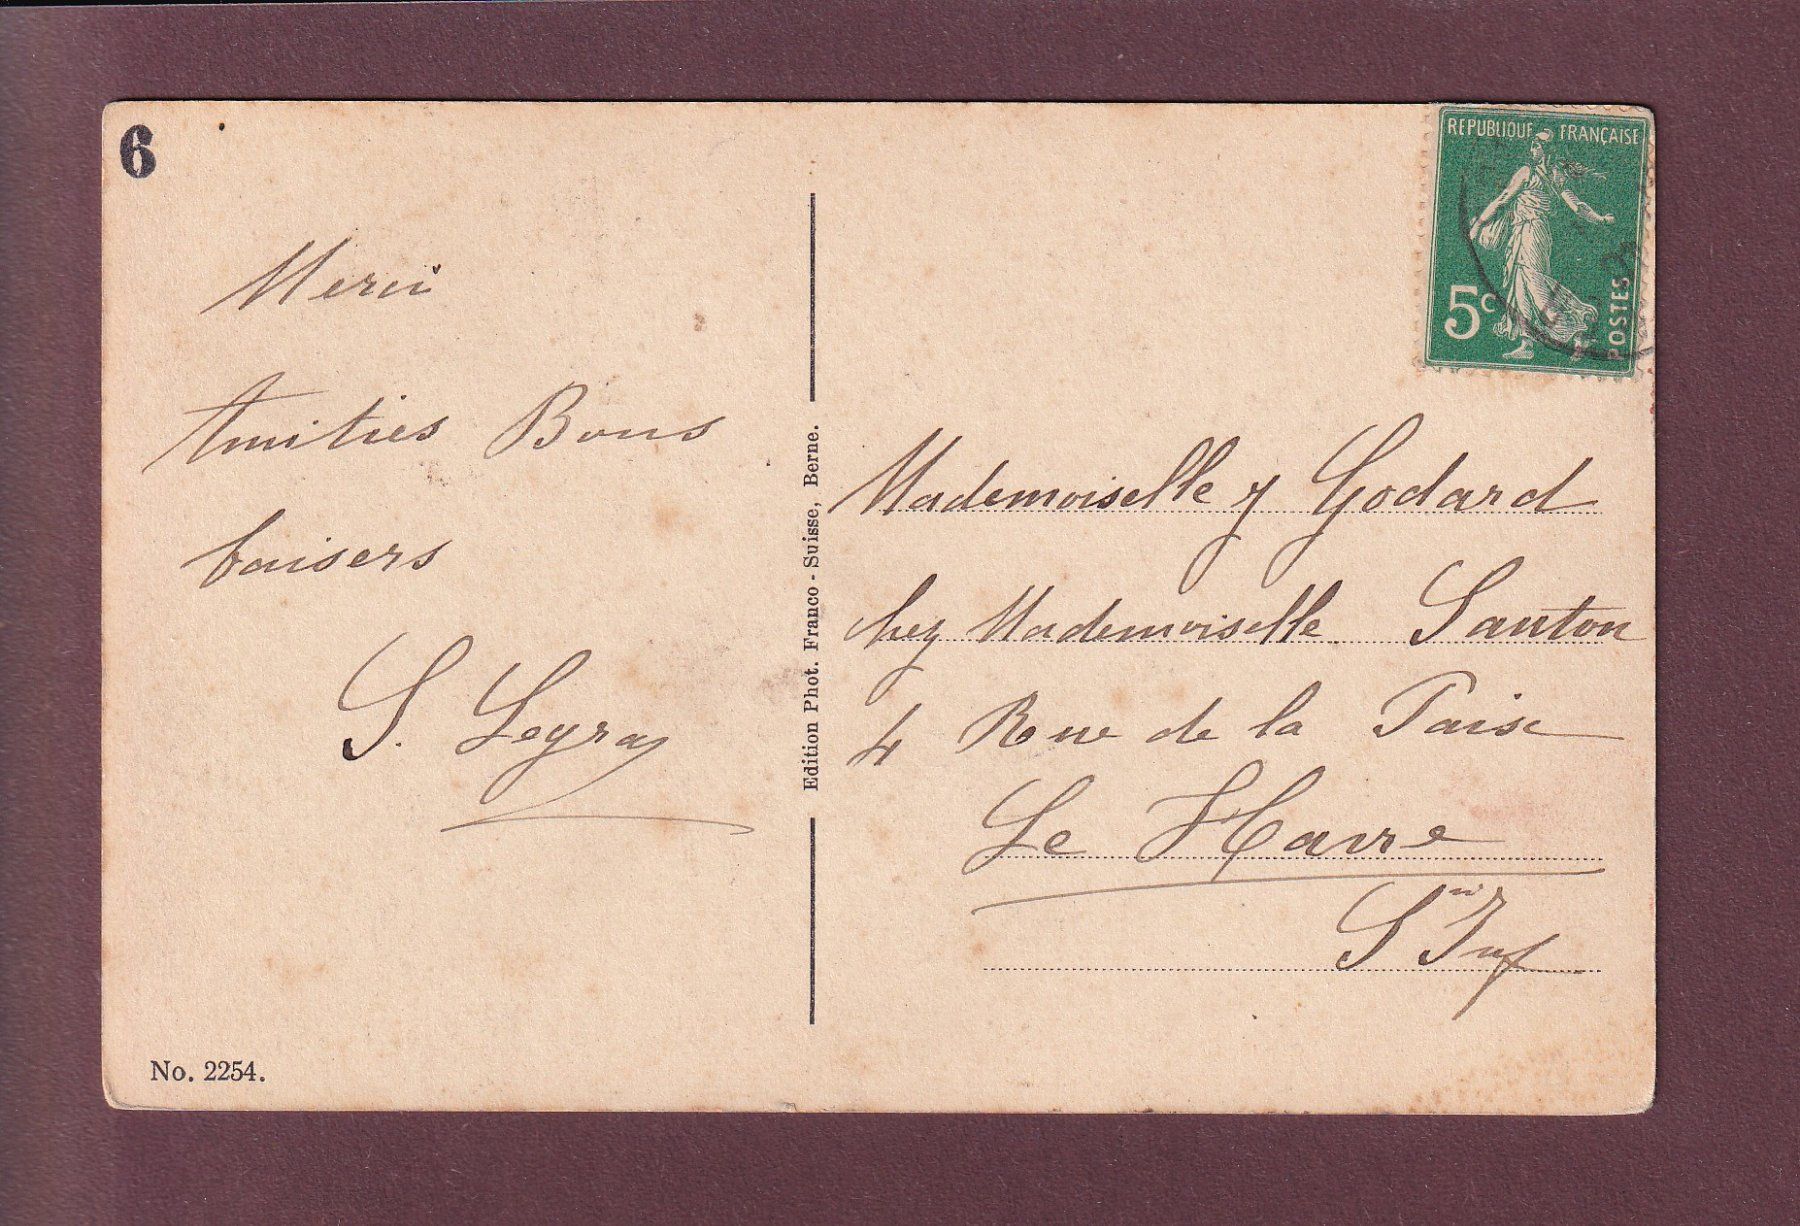 6
Merci
Amitiés Bons
baisers
S. Leyray
No. 2254.
Edition Phot. Franco-Suisse, Berne.
REPUBLIQUE FRANÇAISE
5c
POSTES
Mademoiselle y Godard
chez Mademoiselle Santon
4 Rue de la Paise
Le Havre
S Inf